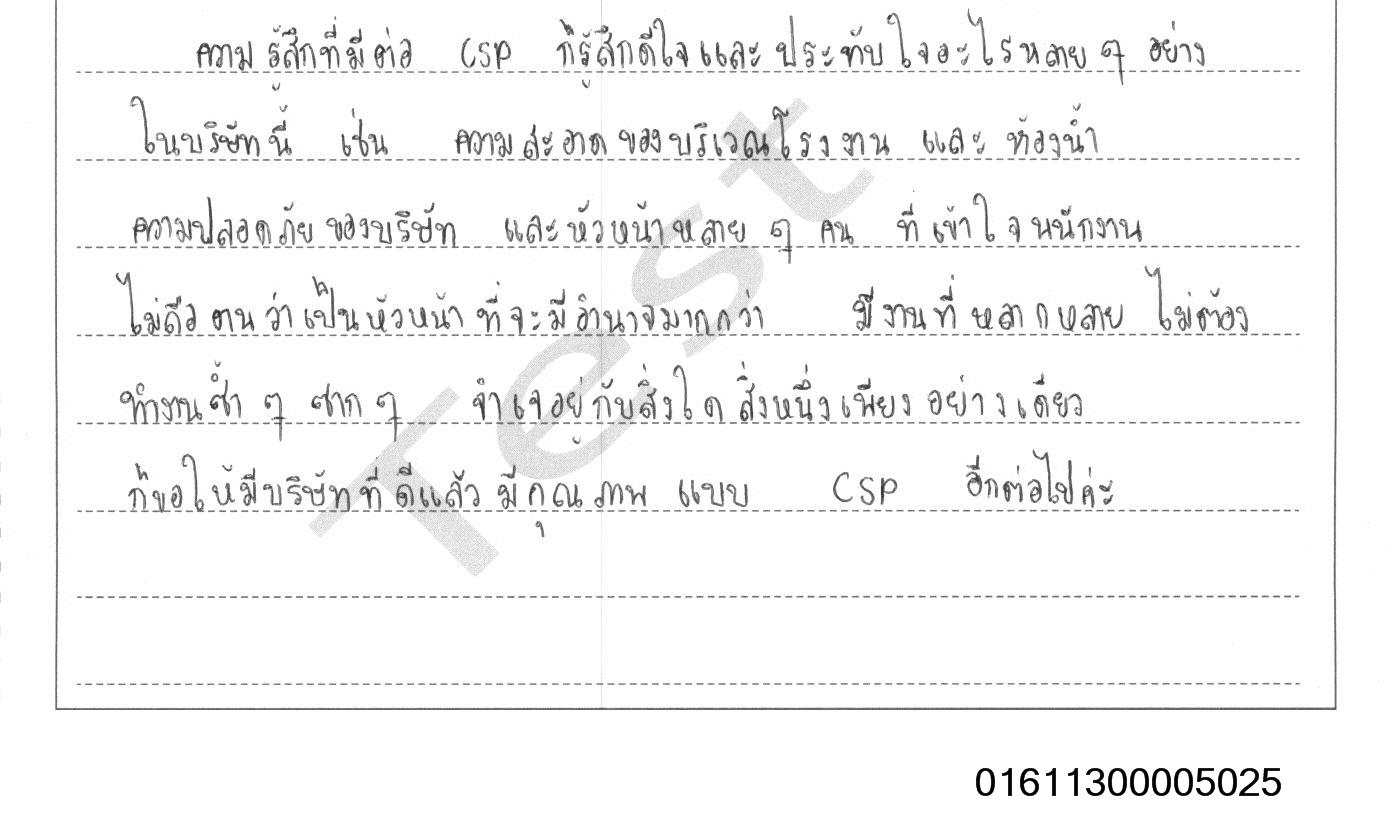 ความรู้สึกที่มีต่อ CSP ก็รู้สึกดีใจและประทับใจอะไรหลาย ๆ อย่าง
ในบริษัทนี้ เช่น ความสะอาดของบริเวณโรงงาน และ ห้องน้ำ
ความปลอดภัยของบริษัท และหัวหน้าหลาย ๆ คน ที่เข้าใจพนักงาน
ไม่ถือตนว่าเป็นหัวหน้าที่จะมีอำนาจมากกว่า มีงานที่หลากหลาย ไม่ต้อง
ทำงานซ้ำ ๆ ซาก ๆ จำเจอยู่กับสิ่งใดสิ่งหนึ่งเพียงอย่างเดียว
ก็ขอให้มีบริษัทที่ดีแล้วมีคุณภาพ แบบ CSP อีกต่อไปค่ะ
Test
01611300005025